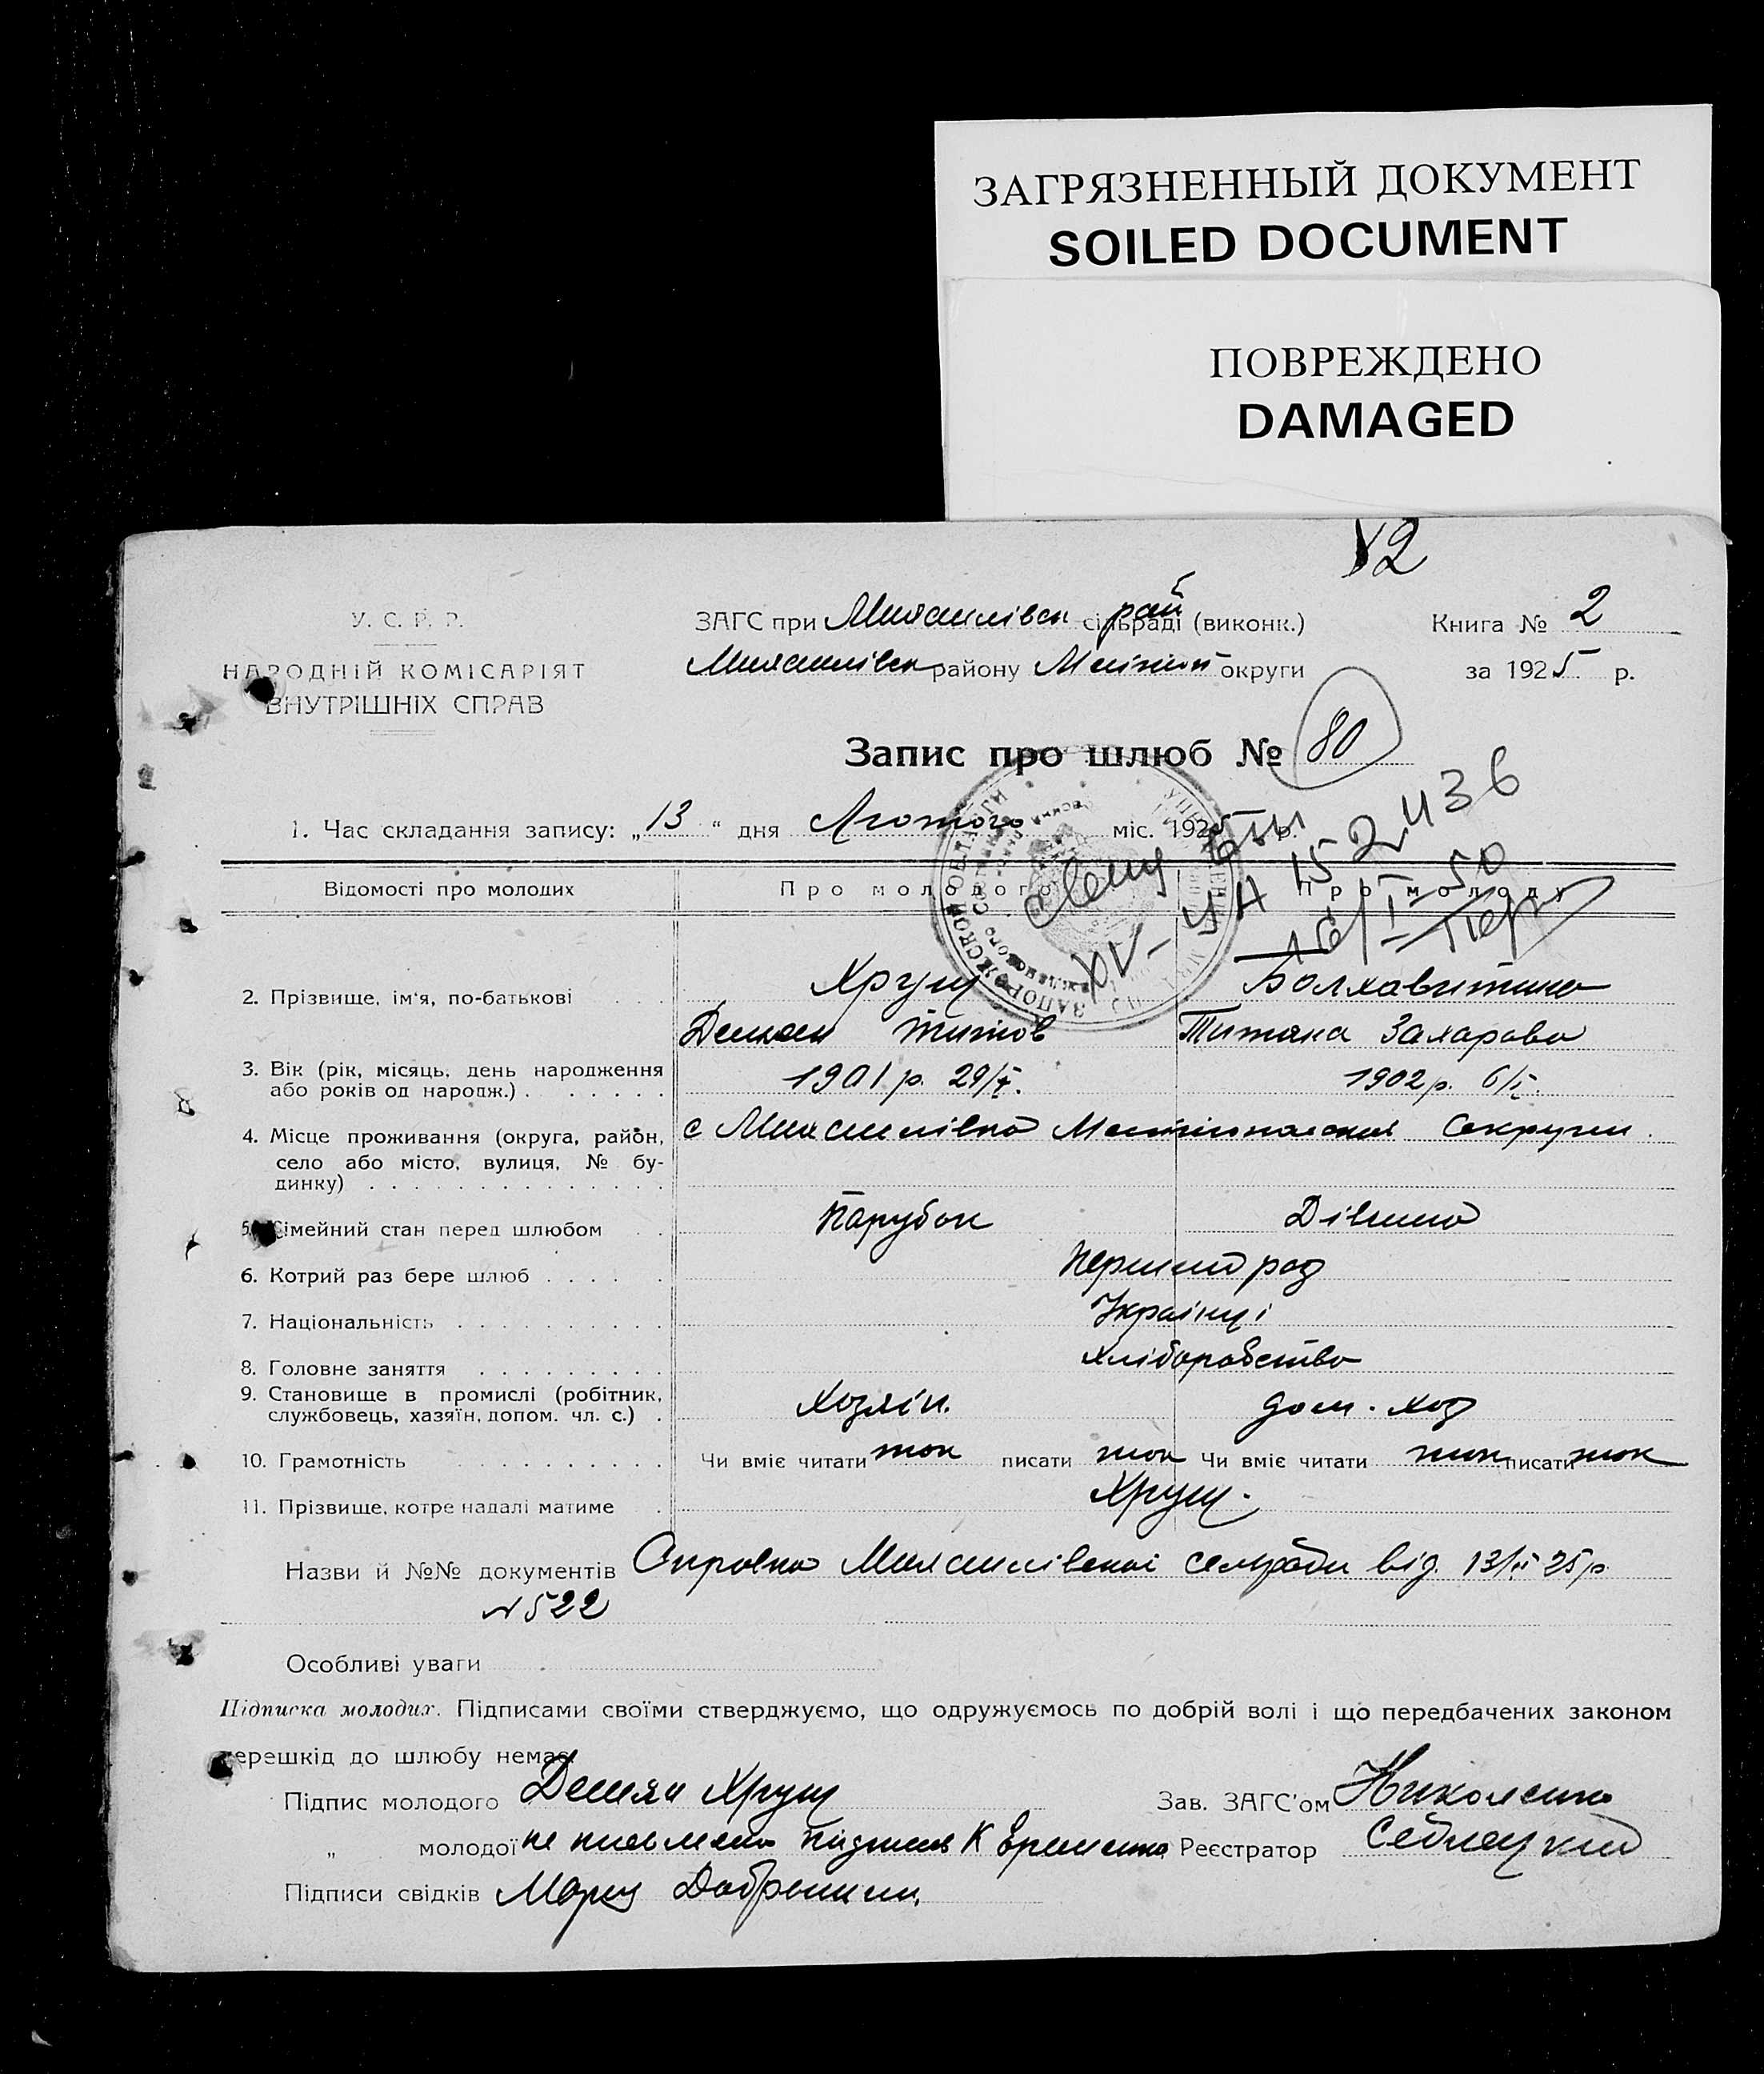 ЗАГРЯЗНЕННЫЙ ДОКУМЕНТ
SOILED DOCUMENT
ПОВРЕЖДЕНО
DAMAGED
У. С. Р. Р.
НАРОДНІЙ КОМІСАРІЯТ
ВНУТРІШНІХ СПРАВ
ЗАГС при Михайлівськ рай сільраді (виконк.)
Михайлівськ району округи
Книга № 2
за 1925 р.
Запис про шлюб № 80
1. Час складання запису: „13“ дня Лютого міс. 1925 р.
Відомості про молодих Про молодого Про молоду
УА 152436
16/I-50
2. Прізвище, ім'я, по-батькові Хрущ Болховитина
Демян Титов Титяна Захарова
3. Вік (рік, місяць, день народження 1901 р. 29/X. 1902 р. 6/I.
або років од народж.)
4. Місце проживання (округа, район, с Михайлівка Мелітопольської Округи.
село або місто, вулиця, № бу-
динку)
5. Сімейний стан перед шлюбом Парубок Дівчина
6. Котрий раз бере шлюб Перший раз
7. Національність Українці
8. Головне заняття хліборобство
9. Становище в промислі (робітник, Хозяїн. дом. хоз
службовець, хазяїн, допом. чл. с.)
10. Грамотність Чи вміє читати так писати так Чи вміє читати так писати так
11. Прізвище, котре надалі матиме Хрущ.
Назви й №№ документів Справка Михайлівської сельради від. 13/II 25 р
№ 522
Особливі уваги
Підписка молодих. Підписами своїми стверджуємо, що одружуємось по добрій волі і що передбачених законом
перешкід до шлюбу немає.
Підпис молодого Демян Хрущ Зав. ЗАГС'ом Николенко
„ молодої не письмена підписав К Еременко Реєстратор
Підписи свідків